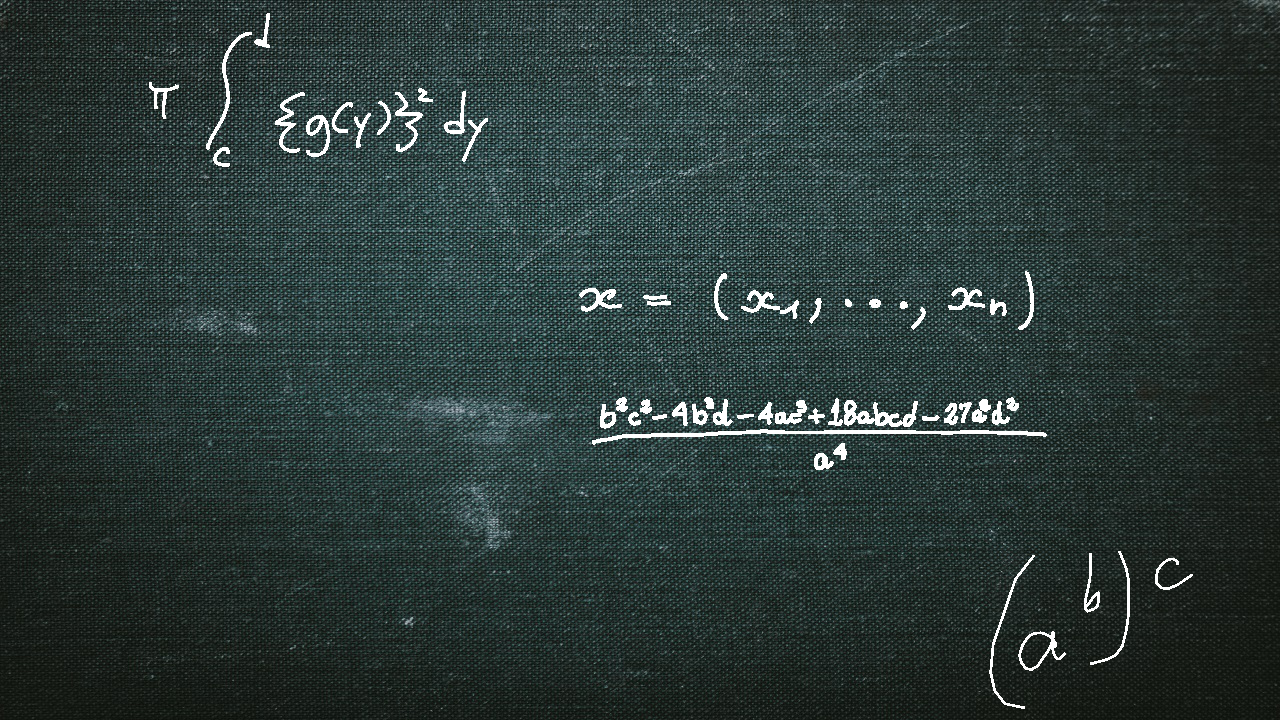 π ∫_c^d {g(y)}² dy
x = (x₁, ..., xₙ)
(b²c² - 4b³d - 4ac³ + 18abcd - 27a²d²) / a⁴
(a^b)^c